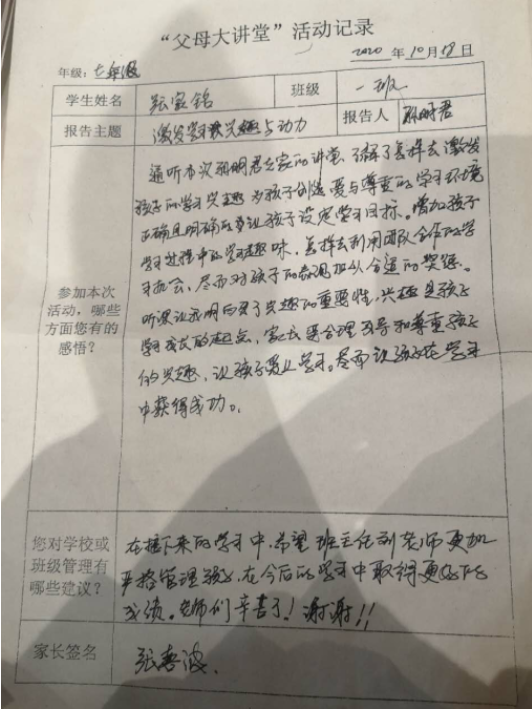 “父母大讲堂”活动记录
2020 年 10 月 18 日
年级：七年级
学生姓名 张家铭 班级 一班
报告主题 激发学习兴趣与动力 报告人 孙明君
通听本次孙明君专家的讲堂，了解了怎样去激发
孩子的学习兴趣，为孩子创造爱与尊重的学习环境
正确且明确的要让孩子设定学习目标。增加孩子
学习过程中的学习趣味，怎样去利用团队合作的学
习机会，尽而对孩子的表现给以合适的奖励。
听课让我明白了兴趣的重要性，兴趣是孩子
学习成长的起点，家长要合理引导和尊重孩子
的兴趣，让孩子爱上学习。尽而让孩子在学习
中获得成功。
参加本次
活动，哪些
方面您有的
感悟？
您对学校或
班级管理有
哪些建议？
在接下来的学习中，希望班主任刘老师更加
严格管理孩子，在今后的学习中取得更好的
成绩。老师们辛苦了！谢谢！！
家长签名 张春波.